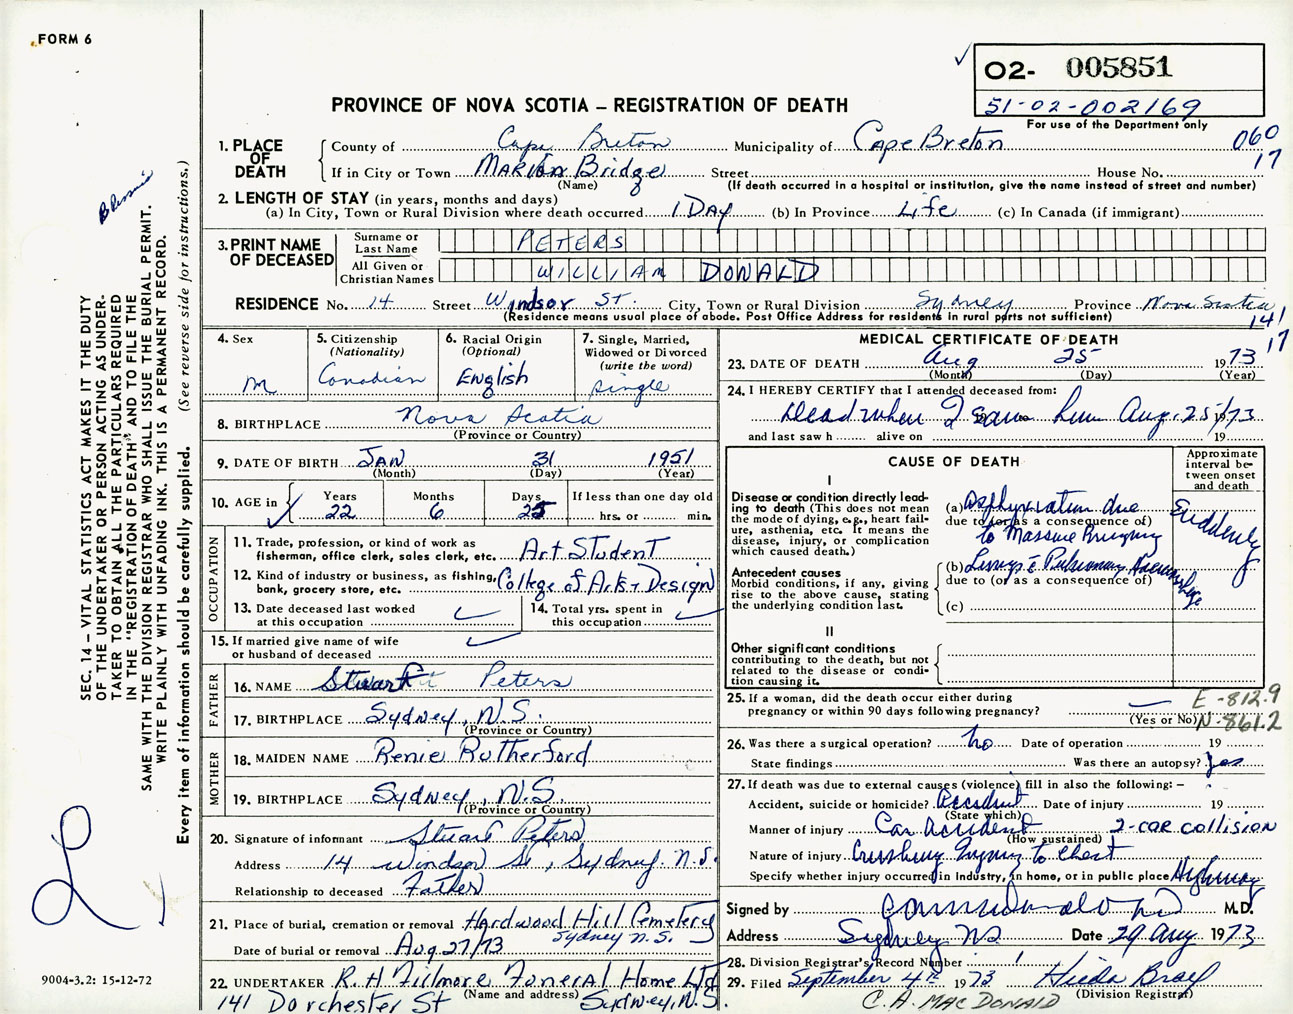 FORM 6
O2- 005851
51-02-002169
For use of the Department only
PROVINCE OF NOVA SCOTIA – REGISTRATION OF DEATH
060
17
1. PLACE OF DEATH
County of Cape Breton Municipality of Cape Breton
If in City or Town Marion Bridge Street House No.
(Name) (If death occurred in a hospital or institution, give the name instead of street and number)
2. LENGTH OF STAY (in years, months and days)
(a) In City, Town or Rural Division where death occurred 1 Day (b) In Province Life (c) In Canada (if immigrant)
3. PRINT NAME OF DECEASED
Surname or Last Name PETERS
All Given or Christian Names WILLIAM DONALD
RESIDENCE No. 14 Street Windsor St. City, Town or Rural Division Sydney Province Nova Scotia
(Residence means usual place of abode. Post Office Address for residents in rural parts not sufficient)
141
17
4. Sex
M
5. Citizenship
(Nationality)
Canadian
6. Racial Origin
(Optional)
English
7. Single, Married, Widowed or Divorced
(write the word)
single
8. BIRTHPLACE Nova Scotia
(Province or Country)
9. DATE OF BIRTH JAN 31 1951
(Month) (Day) (Year)
10. AGE in
Years Months Days If less than one day old
22 6 25 hrs. or min.
OCCUPATION
11. Trade, profession, or kind of work as
fisherman, office clerk, sales clerk, etc. Art Student
12. Kind of industry or business, as fishing,
bank, grocery store, etc. College of Art & Design
13. Date deceased last worked
at this occupation
14. Total yrs. spent in
this occupation
15. If married give name of wife
or husband of deceased
FATHER
16. NAME Stuart Peters
17. BIRTHPLACE Sydney, N.S.
(Province or Country)
MOTHER
18. MAIDEN NAME Renie Rutherford
19. BIRTHPLACE Sydney, N.S.
(Province or Country)
20. Signature of informant Stuart Peters
Address 14 Windsor St, Sydney. N.S.
Relationship to deceased Father
21. Place of burial, cremation or removal Hardwood Hill Cemetery
Sydney N.S.
Date of burial or removal Aug 27/73
22. UNDERTAKER R. H Fillmore Funeral Home Ltd
(Name and address)
141 Dorchester St Sydney, N.S.
MEDICAL CERTIFICATE OF DEATH
23. DATE OF DEATH Aug 25 1973
(Month) (Day) (Year)
24. I HEREBY CERTIFY that I attended deceased from:
Dead when I saw him Aug. 25/73
and last saw h alive on 19
CAUSE OF DEATH
Approximate interval between onset and death
I
Disease or condition directly leading to death (This does not mean the mode of dying, e.g., heart failure, asthenia, etc. It means the disease, injury, or complication which caused death.)
(a) Asphyxiation due
due to (or as a consequence of)
to Massive
Suddenly
Antecedent causes
Morbid conditions, if any, giving rise to the above cause, stating the underlying condition last.
(b) Lungs c̄ Pulmonary Hemorrhage
due to (or as a consequence of)
(c)
II
Other significant conditions
contributing to the death, but not related to the disease or condition causing it.
25. If a woman, did the death occur either during
pregnancy or within 90 days following pregnancy?
(Yes or No)
E -812.9
N-861.2
26. Was there a surgical operation? no Date of operation 19
State findings Was there an autopsy? yes
27. If death was due to external causes (violence) fill in also the following: –
Accident, suicide or homicide? Accident Date of injury 19
(State which)
Manner of injury Car Accident 2-car collision
(How sustained)
Nature of injury Crushing Injury to Chest
Specify whether injury occurred in Industry, in home, or in public place Highway
Signed by M.D.
Address Sydney NS Date 29 Aug 1973
28. Division Registrar's Record Number
29. Filed September 4th 1973 Hilda
(Division Registrar)
C. A. MacDonald
SEC. 14 – VITAL STATISTICS ACT MAKES IT THE DUTY
OF THE UNDERTAKER OR PERSON ACTING AS UNDER-
TAKER TO OBTAIN ALL THE PARTICULARS REQUIRED
IN THE "REGISTRATION OF DEATH" AND TO FILE THE
SAME WITH THE DIVISION REGISTRAR WHO SHALL ISSUE THE BURIAL PERMIT.
WRITE PLAINLY WITH UNFADING INK. THIS IS A PERMANENT RECORD.
Every item of information should be carefully supplied. (See reverse side for instructions.)
9004-3.2: 15-12-72